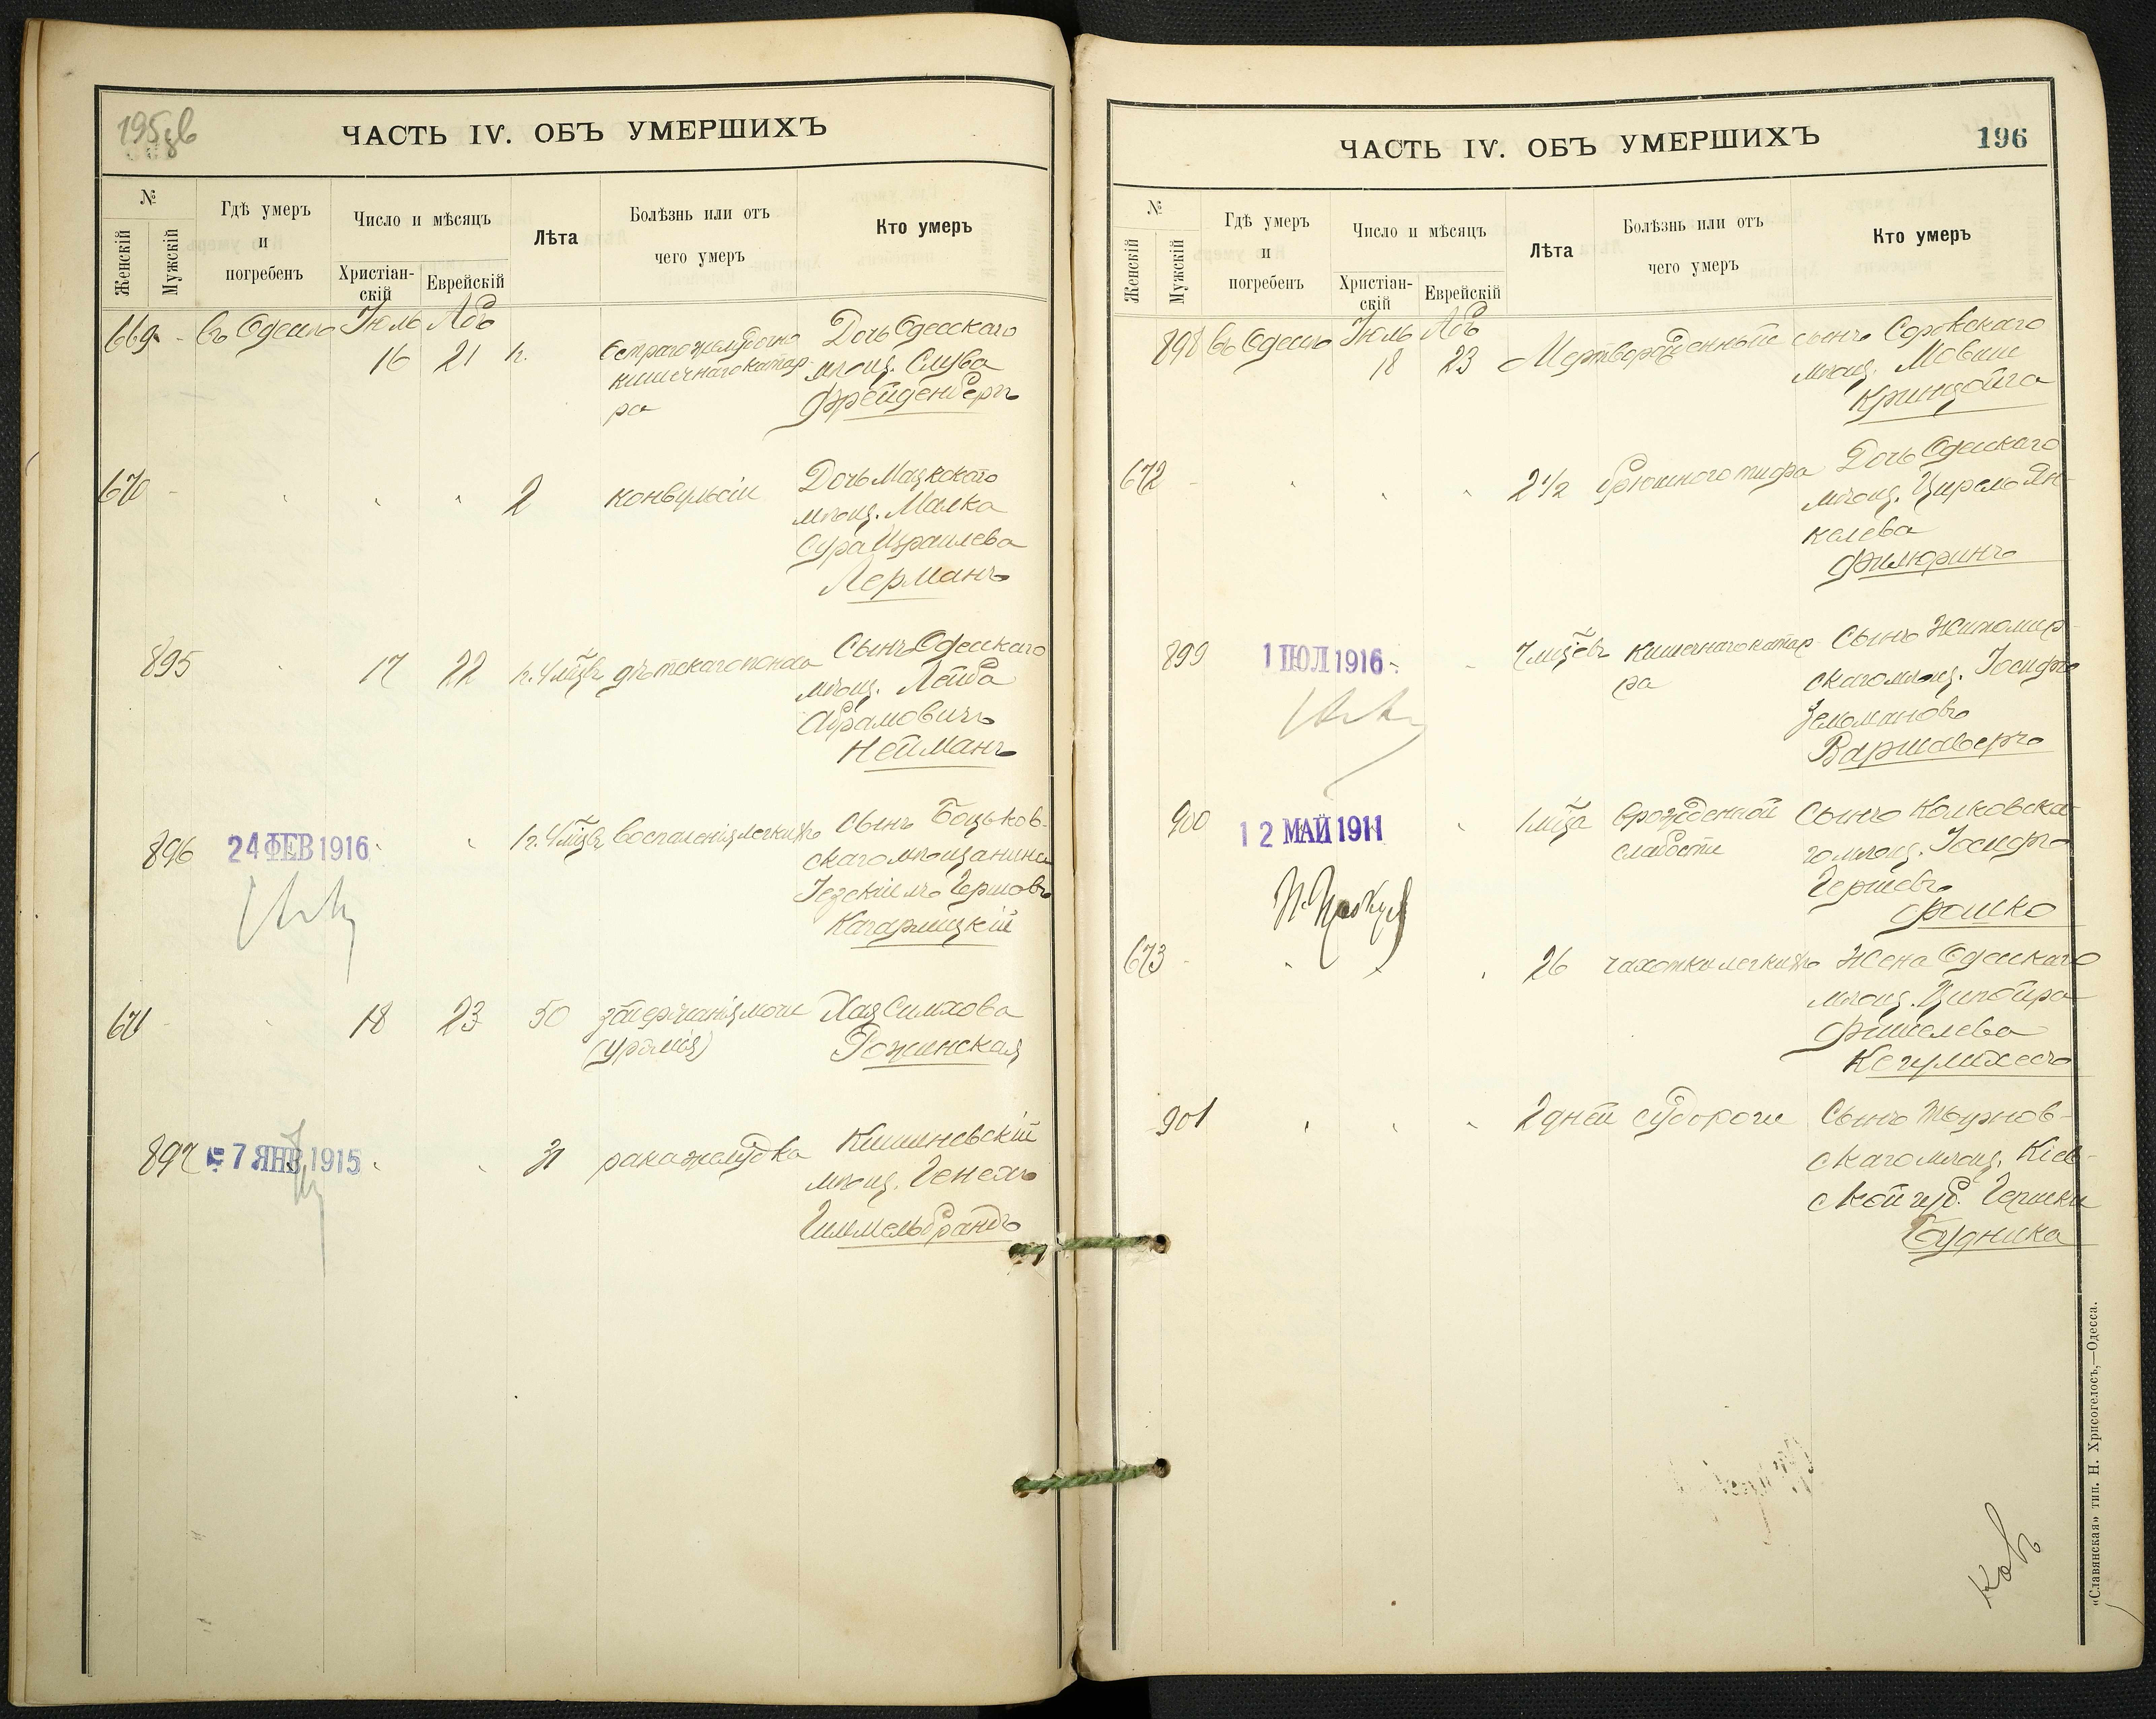 195зв
ЧАСТЬ IV. ОБЪ УМЕРШИХЪ
№
Женскій
Мужскій
Гдѣ умеръ
и
погребенъ
Число и мѣсяцъ
Христіан-
скій
Еврейскій
Лѣта
Болѣзнь или отъ
чего умеръ
Кто умеръ
669 - въ Одессѣ Іюль Абъ
16 21 1 г.
Остраго желудочно
кишечнаго катар-
ра
Дочь Одесскаго
мѣщ. Слува
Фрейденбергъ
670 - 2 конвульсіи
Дочь Маякскаго
мѣщ. Малка
Сура Израилева
Лерманъ
895 17 22 1 г. 4 мцѣ дѣтскаго поноса
Сынъ Одесскаго
мѣщ. Лейба
Абрамовичъ
Нейманъ
896 24 ФЕВ 1916 1 г. 4 мцѣ воспаленія легкихъ
Сынъ Боцьков-
скаго мѣщанина
Іезекіиль Гершовъ
Кагарлицкій
671 - 18 23 50 задержанія мочи
(уремія)
Хая Симхова
Рожинская
897 7 ЯНВ 1915 31 рака желудка
Кишиневскій
мѣщ. Генехъ
Гиммельбрандъ
ЧАСТЬ IV. ОБЪ УМЕРШИХЪ
196
№
Женскій
Мужскій
Гдѣ умеръ
и
погребенъ
Число и мѣсяцъ
Христіан-
скій
Еврейскій
Лѣта
Болѣзнь или отъ
чего умеръ
Кто умеръ
898 въ Одессѣ Іюль Абъ
18 23 Мертворожденный
сынъ Сорокскаго
мѣщ. Мовши
672 - 2 1/2 брюшного тифа
Дочь Одесскаго
мѣщ. Цирель Ян-
келева
Филюринъ
899 1 ІЮЛ 1916 7 мцевъ Кишечнаго катар-
ра
Сынъ Житомир-
скаго мѣщ. Іосифъ
Зельмановъ
Варшаверъ
900 12 МАЙ 1911 1 мца врожденной
слабости
Сынъ Колковска-
го мѣщ. Іосифъ
Гершевъ
Фошко
673 - 26 чахотки легкихъ
Жена Одесскаго
мѣщ. Ципойра
Фишелева
901 2 дней судороги
Сынъ
скаго мѣщ. Кіев-
ской губ. Гершки
Будника
«Славянская» тип. Н. Хрисогелосъ,—Одесса.